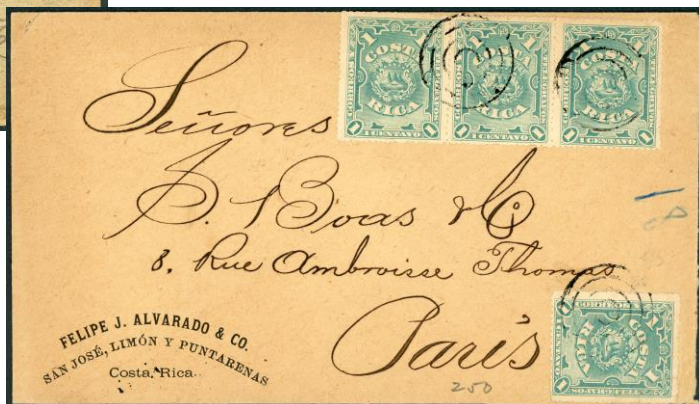 CORREOS Y TELEGRAFOS
1 COSTA RICA 1
1 CENTAVO
COSTA RICA
1 CENTAVO
1 COSTA RICA 1
1 CENTAVO
Señores
S. Boas & Co
8. Rue Ambroisse Thomas
París
FELIPE J. ALVARADO & CO.
SAN JOSÉ, LIMÓN Y PUNTARENAS
Costa Rica.
1 COSTA RICA 1
250